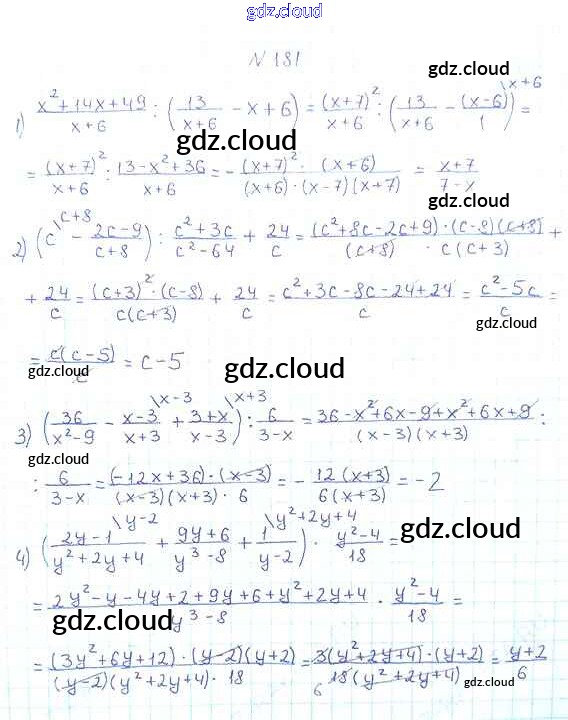 gdz.cloud
N 181
gdz.cloud
1) (x²+14x+49)/(x+6) : (13/(x+6) - x + 6) = (x+7)²/(x+6) : (13/(x+6) - (x-6)/1 \x+6) =
gdz.cloud
= (x+7)²/(x+6) : (13-x²+36)/(x+6) = - ((x+7)² · (x+6))/((x+6)·(x-7)(x+7)) = (x+7)/(7-x)
gdz.cloud
2) (c \c+8 - (2c-9)/(c+8)) : (c²+3c)/(c²-64) + 24/c = ((c²+8c-2c+9)·(c-8)(c+8))/((c+8) · c(c+3)) +
gdz.cloud gdz.cloud
+ 24/c = ((c+3)²·(c-8))/(c(c+3)) + 24/c = (c²+3c-8c-24+24)/c = (c²-5c)/c =
gdz.cloud
= c(c-5)/c = c-5
gdz.cloud gdz.cloud
3) (36/(x²-9) - (x-3)/(x+3) \x-3 + (3+x)/(x-3) \x+3) : 6/(3-x) = (36-x²+6x-9+x²+6x+9)/((x-3)(x+3)) :
gdz.cloud
: 6/(3-x) = ((-12x+36)·(x-3))/((x-3)(x+3)·6) = - 12(x+3)/6(x+3) = -2
gdz.cloud
4) ((2y-1)/(y²+2y+4) \y-2 + (9y+6)/(y³-8) + 1/(y-2) \y²+2y+4) · (y²-4)/18 =
gdz.cloud
= (2y²-y-4y+2+9y+6+y²+2y+4)/(y³-8) · (y²-4)/18 =
gdz.cloud gdz.cloud
= ((3y²+6y+12)·(y-2)(y+2))/((y-2)(y²+2y+4)·18) = (3(y²+2y+4)·(y+2))/(18(y²+2y+4)) 6 = (y+2)/6
gdz.cloud